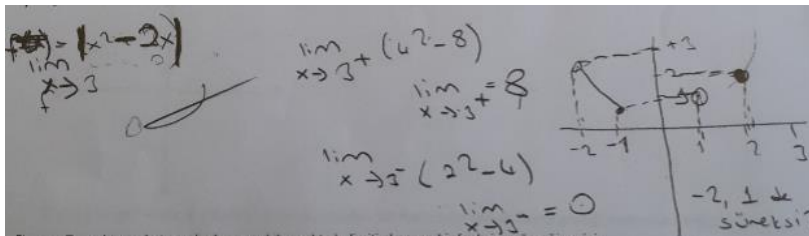 |x² - 2x|
lim
x→3
lim
x→3⁺ (4² - 8)
lim
x→3⁺ = 8
lim
x→3⁻ (2² - 4)
lim
x→3⁻ = 0
+3
2
-2 -1 1 2 3
-2, 1 de
süreksiz